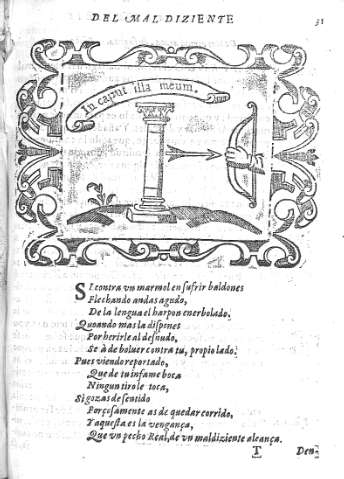 DEL MAL DIZIENTE
31
In caput illa meum.
SI contra vn marmol en sufrir baldones
Flechando andas agudo,
De la lengua el harpon enerbolado,
Quoando mas la dispones
Por herirle al desnudo,
Se à de boluer contra tu, propio lado.
Pues viendo reportado,
Que de tu infame boca
Ningun tiro le toca,
Si gozas de sentido
Porçosamente as de quedar corrido,
Y aquesta es la vengança,
Que vn pecho Real, de vn maldiziente alcança.
T
Den-